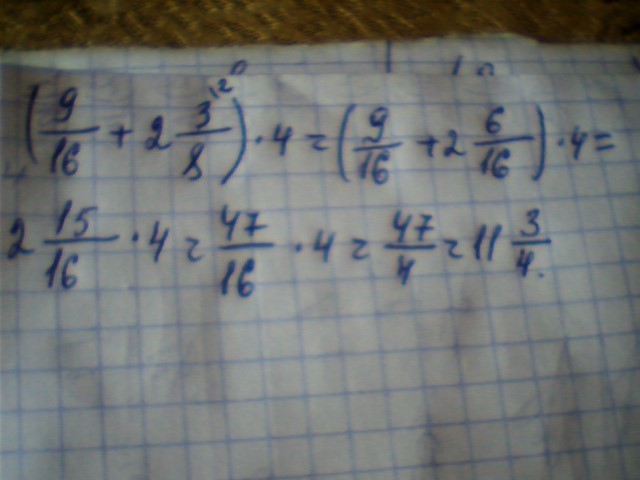 (9/16 + 2 3\2/8) · 4 = (9/16 + 2 6/16) · 4 =
2 15/16 · 4 = 47/16 · 4 = 47/4 = 11 3/4.